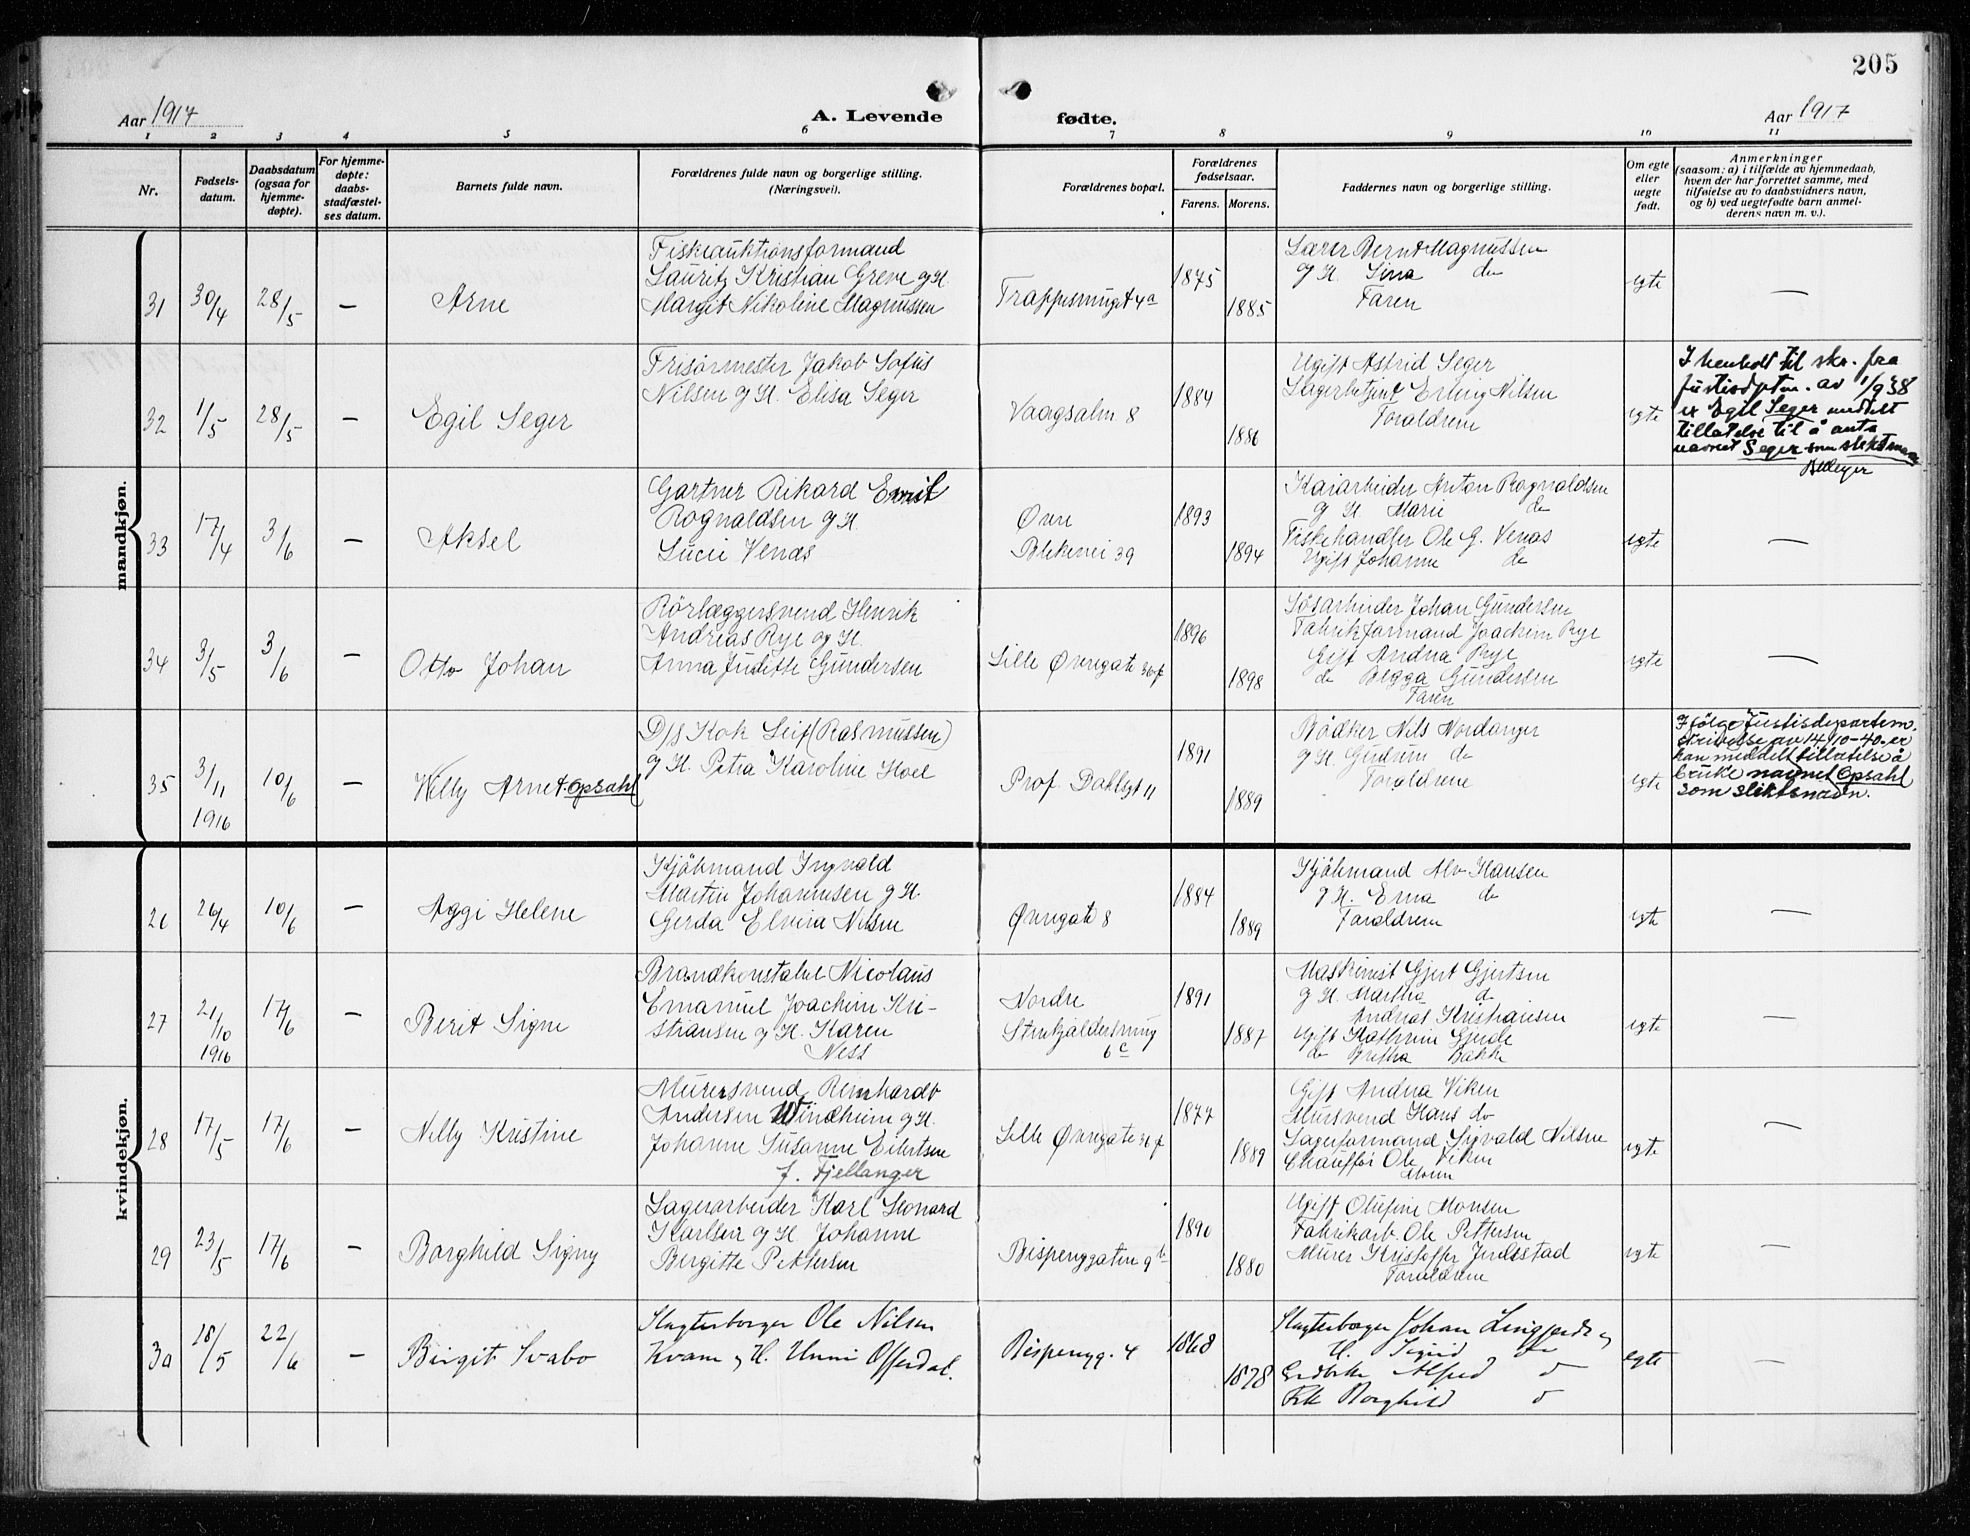 205
Aar 1917
A. Levende fødte.
Aar 1917
1 2 3 4 5 6 7 8 9 10 11
Nr.
Fødsels-
datum.
Daabsdatum
(ogsaa for
hjemme-
døpte).
For hjemme-
døpte:
daabs-
stadfæstel-
ses datum.
Barnets fulde navn.
Forældrenes fulde navn og borgerlige stilling.
(Næringsvei).
Forældrenes bopæl.
Forældrenes
fødselsaar.
Farens. Morens.
Faddernes navn og borgerlige stilling.
Om egte
eller
uegte
født.
Anmerkninger
(saasom: a) i tilfælde av hjemmedaab,
hvem der har forrettet samme, med
tilføielse av to daabsvidners navn,
og b) ved uegtefødte barn anmel-
derens navn m. v.).
mandkjøn.
31 30/4 28/5 — Arne
Fiskeauktionsformand
Lauritz Kristian Greve og H.
Margit Nikoline Magnussen
Trappesmuget 4a
1875 1885
Lærer Bernt Magnussen
og H. Sina do
Faren
egte —
32 1/5 28/5 — Egil Seger
Frisörmester Jakob Sofus
Nilsen og H. Elisa Seger
Vaagsalm 8
1884 1886
Ugift Astrid Seger
Lagerbetjent Erling Nilsen
Forældrene
egte
I henhold til skr. fra
Justisdptm. av 1/9 38
er Egil Seger meddelt
tillatelse til å anta
navnet Seger som slektsnavn
33 17/4 3/6 — Aksel
Gartner Rikard Emil
Rognaldsen og H.
Lucie Venæs
Øvre
Blekevei 39
1893 1894
Kaiarbeider Anton Rognaldsen
og H Marie do
Fiskehandler Ole G. Venæs
Ugift Johanne do
egte —
34 3/5 3/6 — Otto Johan
Rörlæggersvend Henrik
Andreas Rye og H.
Anna Judithe Gundersen
Lille Øvregate 30f
1896 1898
Løsarbeider Johan Gundersen
Fabrikformand Joachim Rye
Gift Andrea Rye
do Begga Gundersen
Faren
egte —
35 3/11 1916 10/6 — Willy Arnet Opsahl
D/s Kok Leif (Rasmussen)
og H. Petra Karoline Hoel
Prof. Dahlsgt 11
1891 1889
Bödker Nils Nordanger
og H. Gudrun do
Forældrene
egte
Ifölge Justisdepartem.
skrivelse av 14/10-40. er
han meddelt tillatelse å
bruke navnet Opsahl
som slektsnavn.
kvindekjøn.
26 26/4 10/6 — Aggi Helene
Kjökmand Ingvald
Martin Johannesen og H.
Gerda Elvira Nilsen
Øvregate 8
1884 1889
Kjökmand Alv Hansen
og H. Erna do
Forældrene
egte —
27 21/10 1916 17/6 — Berit Signe
Brandkonstabel Nicolaus
Emanuel Joachim Kri-
stiansen og H. Karen
Ness
Nordre
6c
1891 1887
Maskinist Gjert Gjertsen
og H. Martha do
Andreas Kristiansen
Ugift Kathrine Gjerde
do Gretha Bakke
egte —
28 17/5 17/6 — Nelly Kristine
Murersvend Reinhardt
Andersen Windheim og H.
Johanne Susanne Eilertsen
f. Fjellanger
Lille Øvregate 36f
1877 1889
Gift Andrea Viken
Mursvend Hans do
Lagerformand Sigvald Nilsen
Chauffør Ole Viken
Moren
egte —
29 23/5 17/6 — Borghild Signy
Lagerarbeider Karl Leonard
Karlsen og H Johanne
Birgitte Pettersen
Bispenggaten 9b
1890 1880
Ugift Olufine Monsen
Fabrikarb Ole Pettersen
Murer Kristoffer Jendestad
Forældrene
egte —
30 18/5 22/6 — Birgit Svabo
Slagterborger Ole Nilsen
Kvam og H. Unni Offerdal.
Bispengg. 4
1868 1878
Slagterborger Johan Lingjerde og
H. Sigrid do
Alfred do
Frk Borghild do
egte —